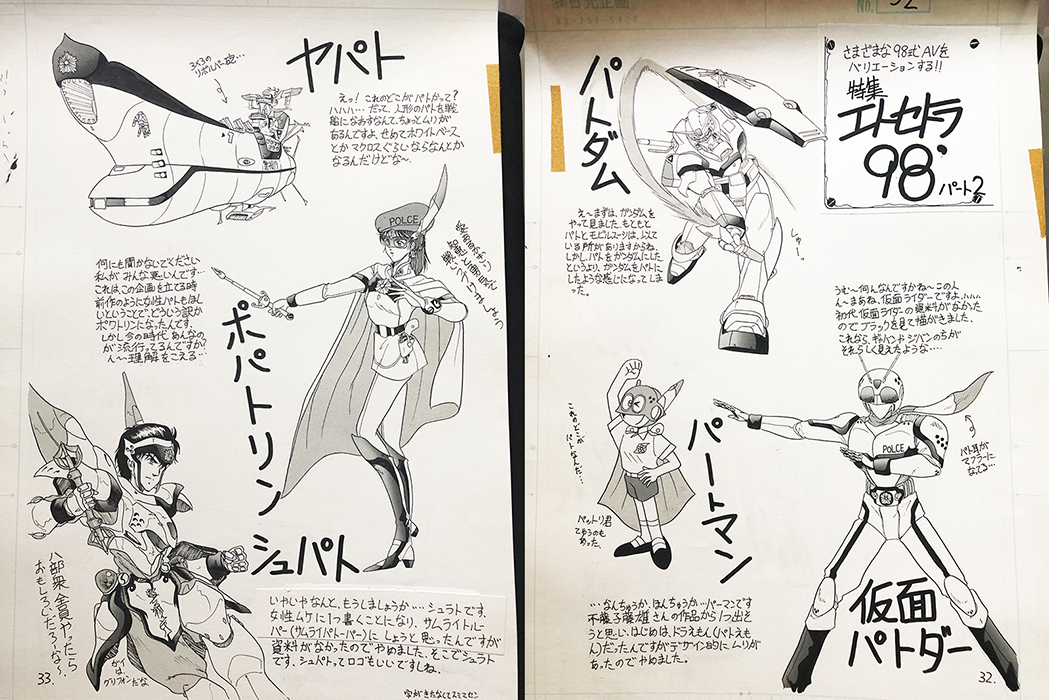 さまざまな98式AVを
バリエーションする!!
特集
エトセトラ
98'
パート2
パトダム
え〜まずは、ガンダムを
やって見ました。もともと
パトとモビルスーツは、以て
いる所がありますからね。
しかし、パトをガンダムにした
というより、ガンダムをパトに
したような感じになってしま
った。
しゅー
うむ〜何んなんですかね〜この人
ん〜まあね、仮面ライダーですよ、ハハハ
初代仮面ライダーの資料がなかった
のでブラックを見て描がきました。
これなら、ギャバンやジバンのちが
それらしく見えたような‥‥
POLICE
パト耳が
マフラーに
なってる…
仮面
パトダー
パートマン
これのどこが
パトなんだ…
パットリ君
てゆうのも
あった。
‥‥なんちゅうか、ほんちゅうか…パーマンです
不二藤子藤雄さんの作品から1つ出そ
うと思い、はじめは、ドラえもん(パトえも
ん)だったんですがデザイン的にムリが
あったのでやめました。
32.
ヤパト
3×3の
リボルバー砲…
えっ!これのどこがパトかって?
ハハハ…だって、人形のパトを戦
艦になおすなんて、ちょっとムリが
あるんですよ、せめてホワイトベース
とかマクロスぐらいならなんとか
なるんだけどな〜。
POLICE
何にも聞かないでください
私がみんな悪いんです…
これは、この企画を立てる時
前作のように女性パトもほし
いということで、どういう訳か
ポワトリンになったんです。
しかし今の時代あんなの
が流行ってるんですか?
ん〜理解をこえる…
ポパトリン
シュパト
八部衆全員やったら
おもしろいだろーな〜。
ガイ
は、
グリフォンだな
いやいやなんと、もうしましょうか‥‥シュラトです。
女性ムケに1つ書くことになり、サムライトルー
パー(サムライパトーパー)にしようと思ったんですが
資料がなかったのでやめました。そこでシュラト
です、シュパトってロゴもいいですしね。
字がきたなくてスミマセン
33.